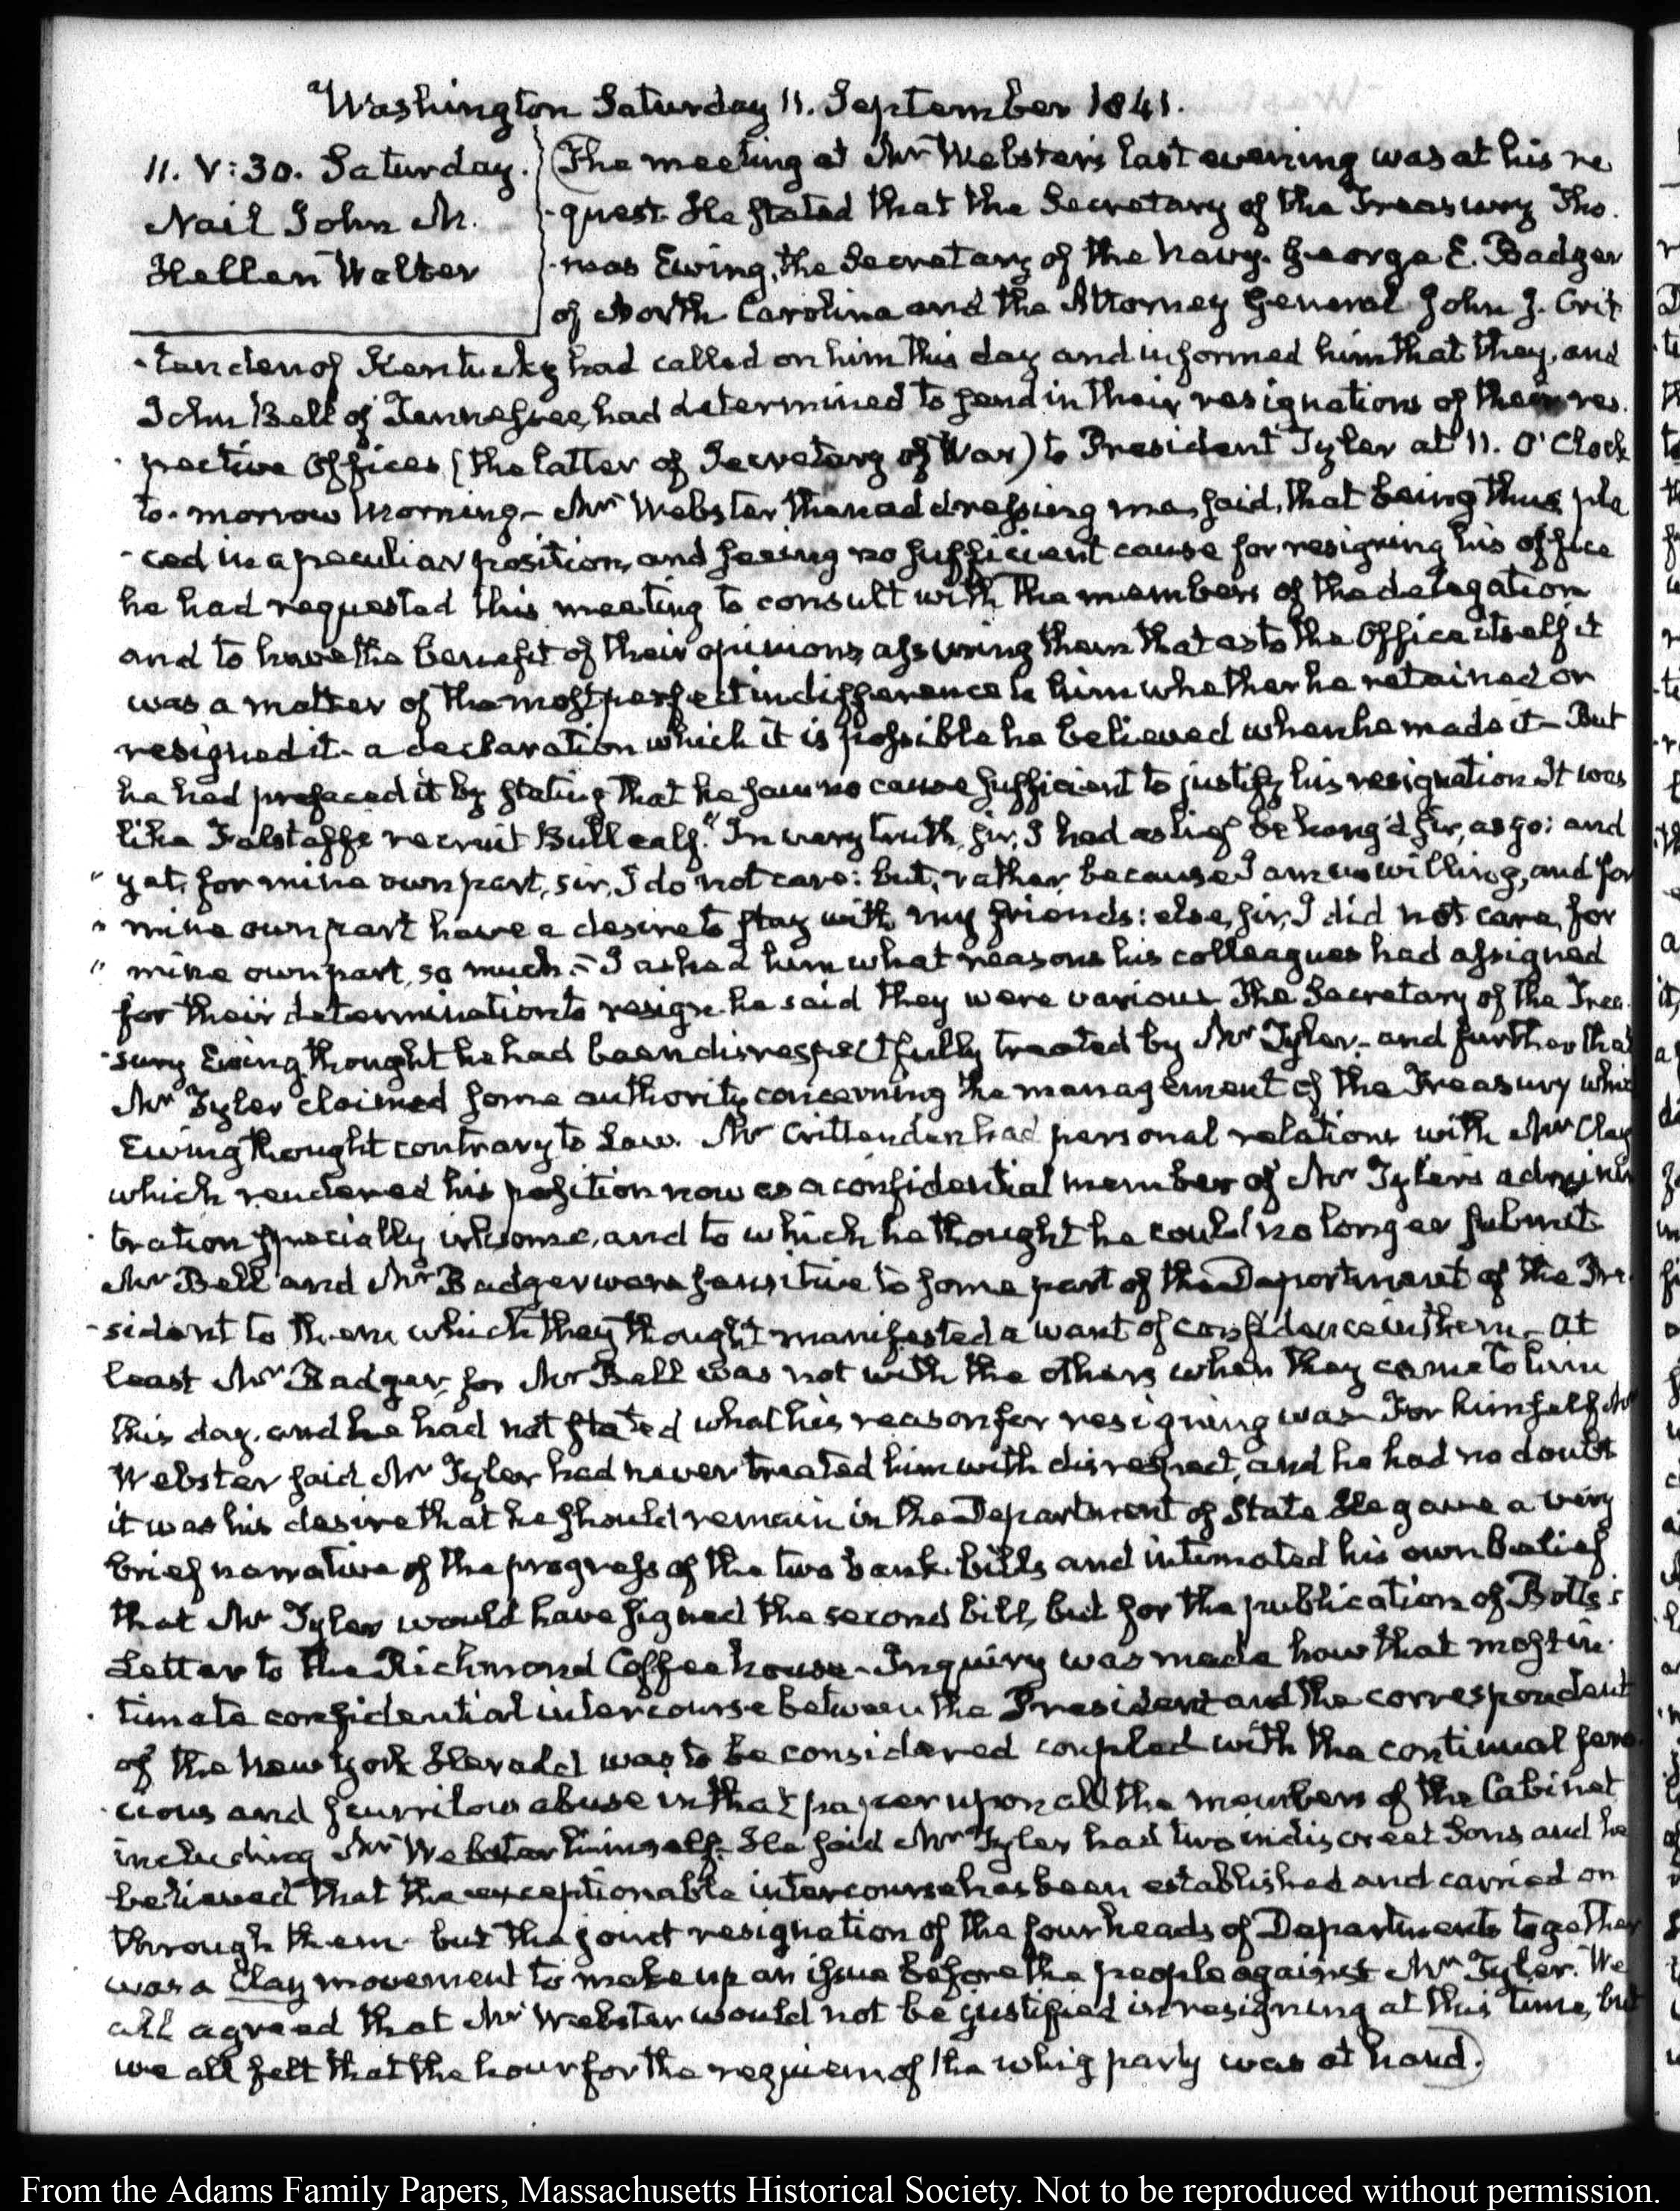 Washington Saturday 11. September 1841.
11. V:30. Saturday.
Nail John M.
Hellen Walter
The meeting at Mr Webster's last evening was at his re
-quest. He stated that the Secretary of the Treasury Tho-
-mas Ewing, the Secretary of the Navy. George E. Badger
of North Carolina and the Attorney General John J. Crit
-tenden of Kentucky had called on him this day and informed him that they, and
John Bell of Tennessee, had determined to send in their resignations of their res-
-pective Offices (the latter of Secretary of War) to President Tyler at 11. O'Clock
to-morrow Morning- Mr Webster then addressing me, said, that being thus pla
-ced in a peculiar position, and seeing no sufficient cause for resigning his office
he had requested this meeting to consult with the members of the delegation
and to have the benefit of their opinions, assuring them that as to the Office itself it
was a matter of the most perfect indifference to him whether he retained or
resigned it- a declaration which it is possible he believed when he made it- But
he had prefaced it by stating that he saw no cause sufficient to justify his resignation It was
like Falstaff's recruit Bullcalf. "In very truth, sir, I had as lief be hang'd sir, as go: and
" yet, for mine own part, sir, I do not care: but, rather, because I am unwilling, and for
" mine own part have a desire to stay with my friends: else, sir, I did not care, for
" mine own part, so much.- I asked him what reasons his colleagues had assigned
for their determination to resign. he said they were various The Secretary of the Trea-
-sury Ewing, thought he had been disrespectfully treated by Mr Tyler- and further that
Mr Tyler claimed some authority concerning the management of the Treasury which
Ewing thought contrary to Law. Mr Crittenden had personal relations with Mr Clay
which rendered his position now as a confidential member of Mr Tyler's adminis
-tration specially irksome, and to which he thought he could no longer submit
Mr Bell and Mr Badger were sensitive to some part of the Deportment of the Pre-
-sident to them which they thought manifested a want of confidence in them- at
least Mr Badger, for Mr Bell was not with the others when they came to him
this day, and he had not stated what his reason for resigning was- For himself Mr
Webster said Mr Tyler had never treated him with disrespect, and he had no doubt
it was his desire that he should remain in the Department of State He gave a very
brief narrative of the progress of the two bank-bills and intimated his own belief
that Mr Tyler would have signed the second bill, but for the publication of Botts's
Letter to the Richmond Coffee house- Inquiry was made how that most in-
-timate confidential intercourse between the President and the correspondent
of the New York Herald was to be considered coupled with the continual fero-
-cious and scurrilous abuse in that paper upon all the members of the Cabinet
including Mr Webster himself- He said Mr Tyler had two indiscreet Sons and he
believed that the exceptionable intercourse has been established and carried on
through them- but the joint resignation of the four heads of Departments together
was a Clay movement to make up an issue before the people against Mr Tyler. We
all agreed that Mr Webster would not be justified in resigning at this time, but
we all felt that the hour for the requiem of the whig party was at hand.)
From the Adams Family Papers, Massachusetts Historical Society. Not to be reproduced without permission.